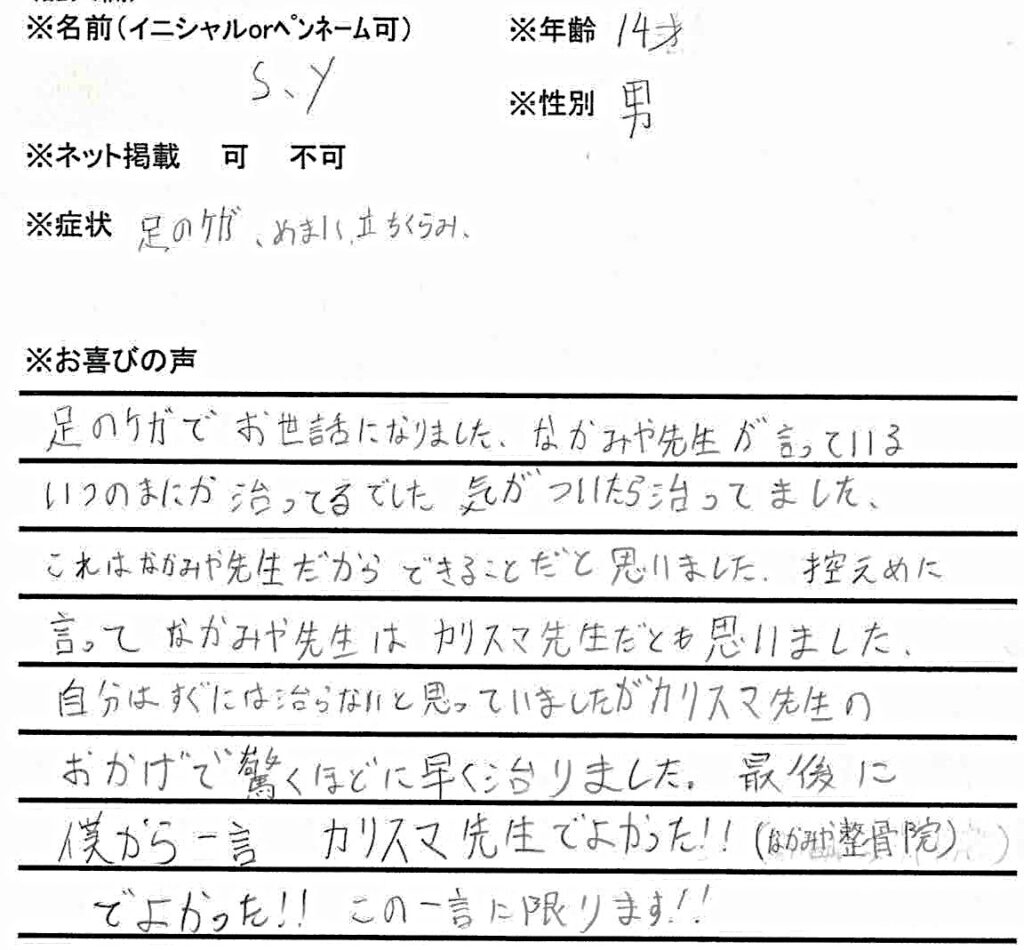 ※名前(イニシャルorペンネーム可)
S、Y
※年齢 14才
※性別 男
※ネット掲載 可 不可
※症状 足のケガ、めまい、立ちくらみ、
※お喜びの声
足のケガで お世話になりました、なかみや先生が言っている
いつのまにか 治ってるでした 気がついたら治ってました、
これはなかみや先生だから できることだと 思いました、控えめに
言って なかみや先生は カリスマ先生だとも思いました、
自分はすぐには治らないと思っていましたがカリスマ先生の
おかげで驚くほどに早く治りました。最後に
僕から一言 カリスマ先生でよかった!!(なかみや整骨院)
でよかった!! この一言に限ります!!